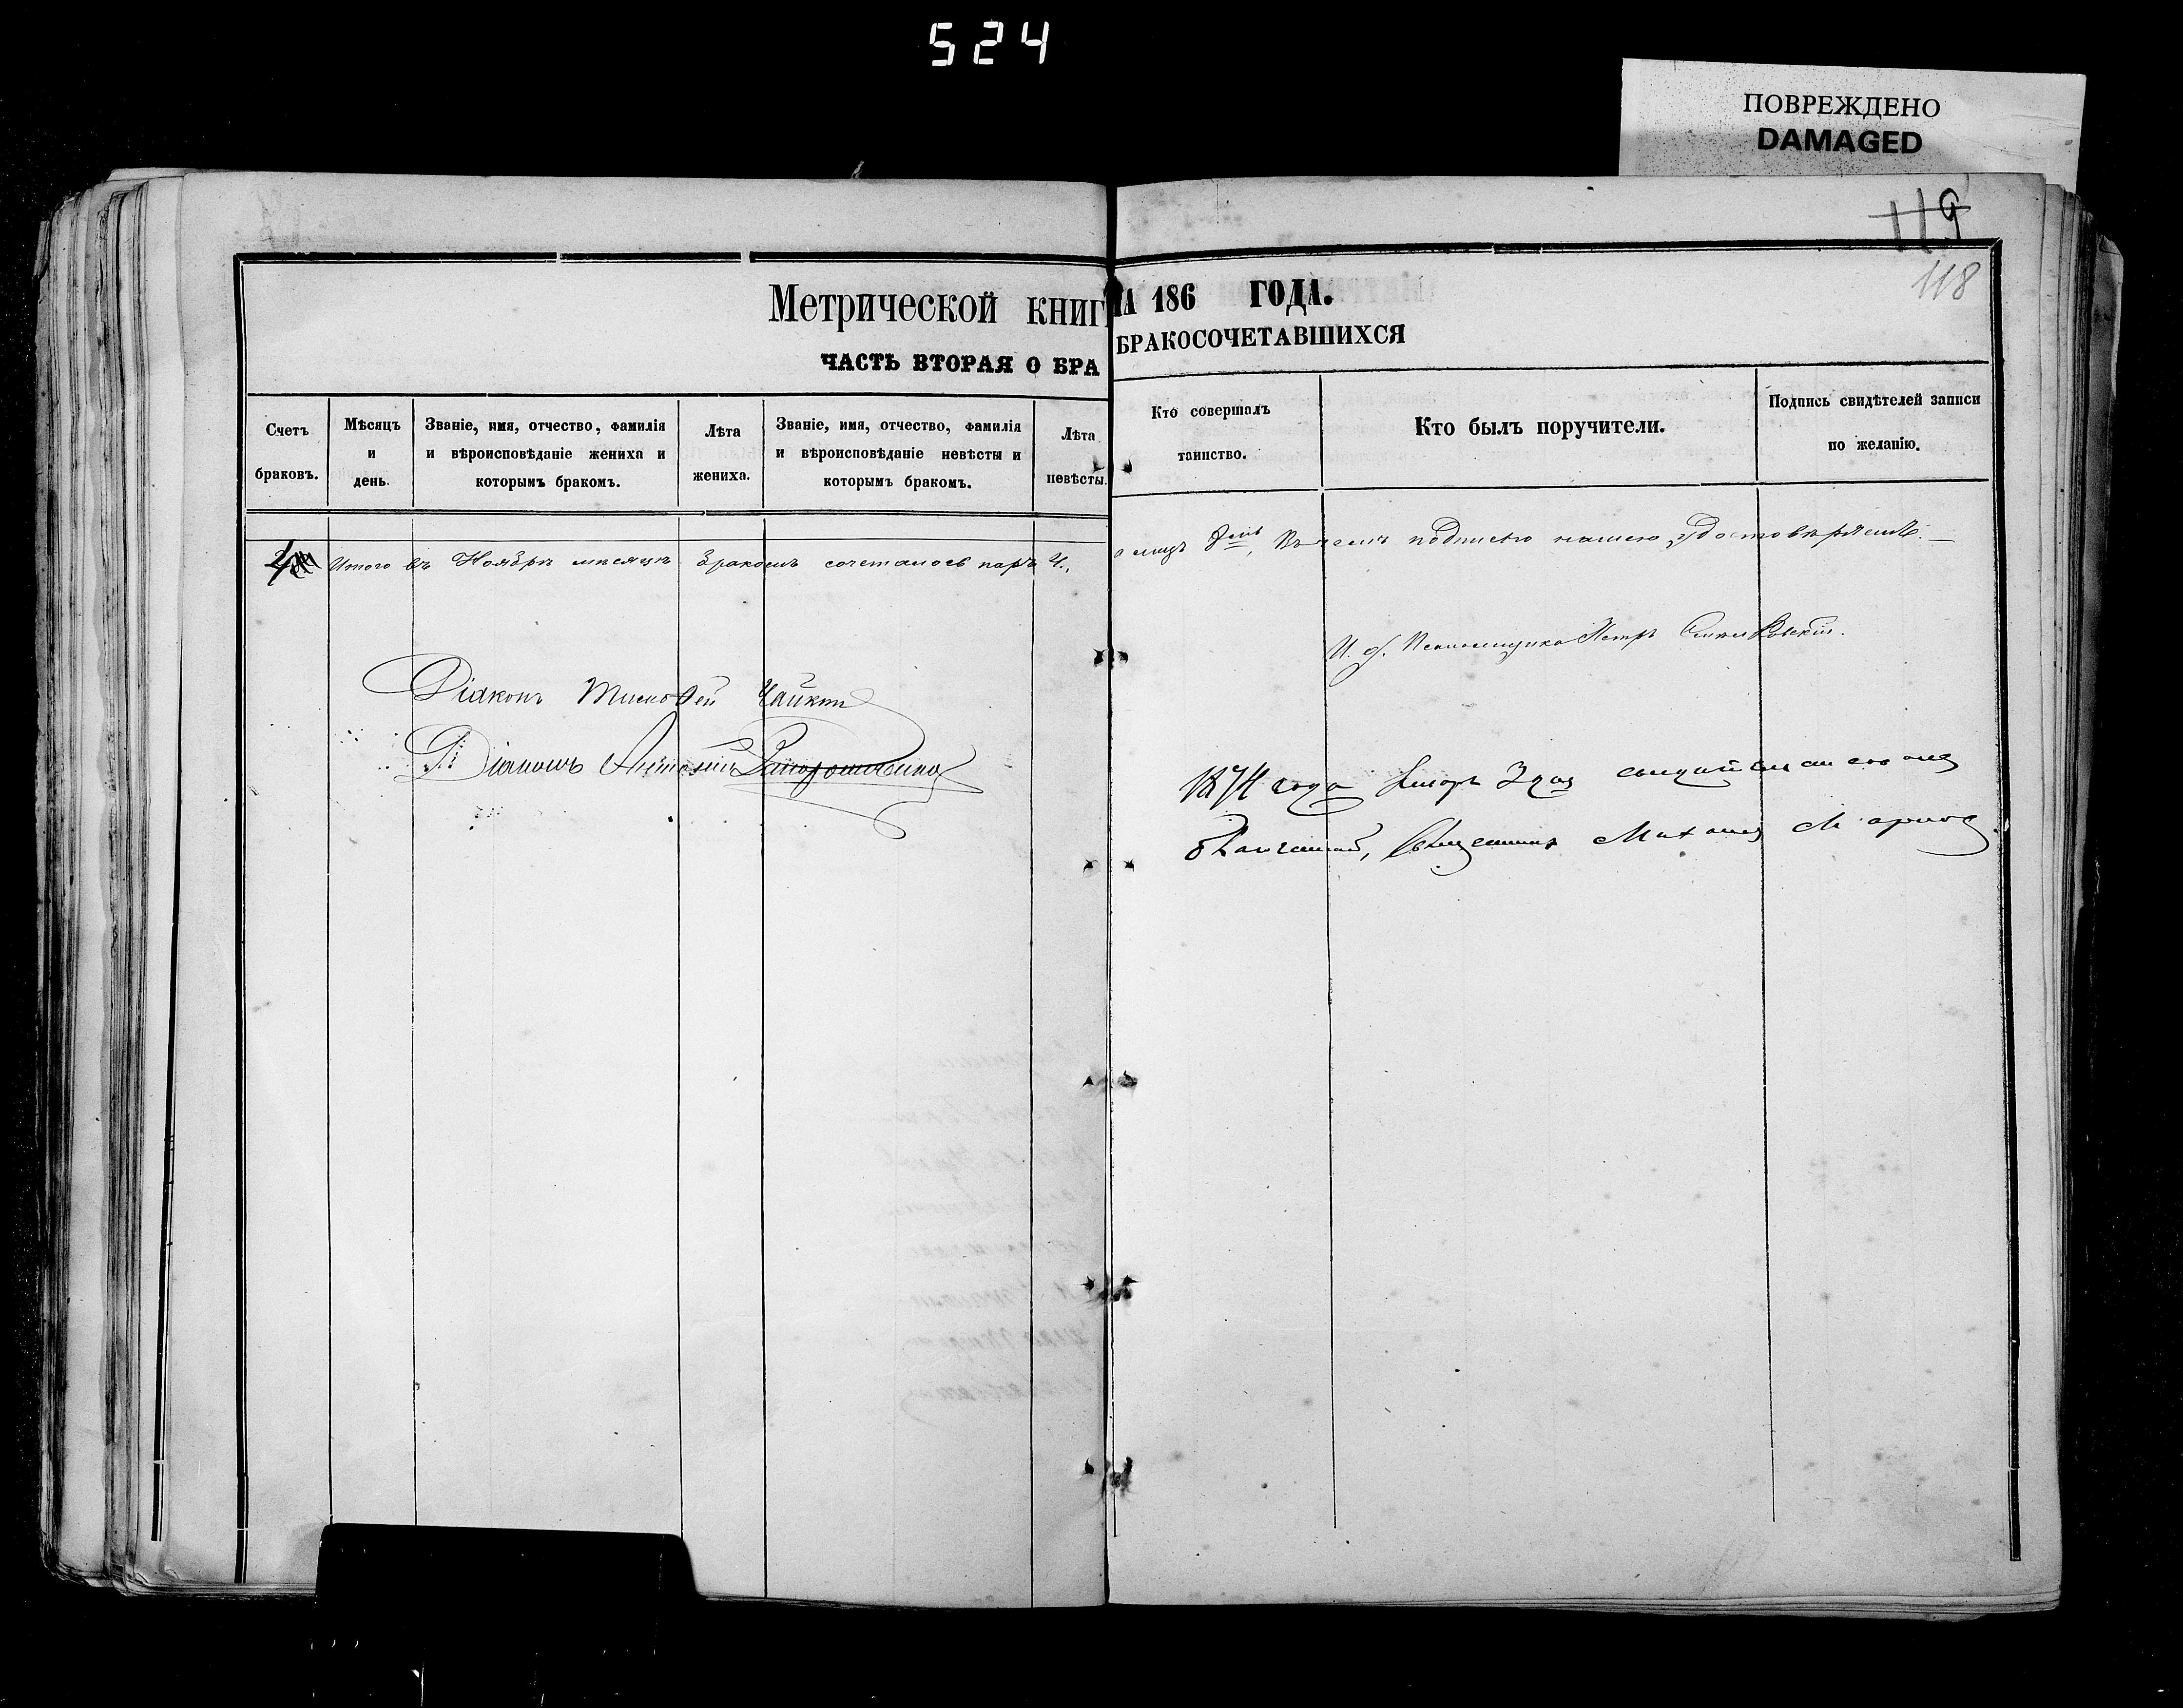 524
ПОВРЕЖДЕНО
DAMAGED
119
118
Метрической книги
НА 186 ГОДА.
ЧАСТЬ ВТОРАЯ О БРА
БРАКОСОЧЕТАВШИХСЯ
Счетъ браковъ.
Мѣсяцъ и день.
Званіе, имя, отчество, фамилія и вѣроисповѣданіе жениха и которымъ бракомъ.
Лѣта жениха.
Званіе, имя, отчество, фамилія и вѣроисповѣданіе невѣсты и которымъ бракомъ.
Лѣта невѣсты.
Кто совершалъ таинство.
Кто былъ поручители.
Подпись свидѣтелей записи по желанію.
Итого въ Ноябрѣ мѣсяцѣ бракомъ сочеталось паръ 4.,
а лицъ 8мь, Въ чемъ подписью нашею удостовѣряемъ.—
И. д. Псаломщика Петръ
Діаконъ Тимофей
Діаконъ
1874 года 3 дня
Священникъ Михаилъ